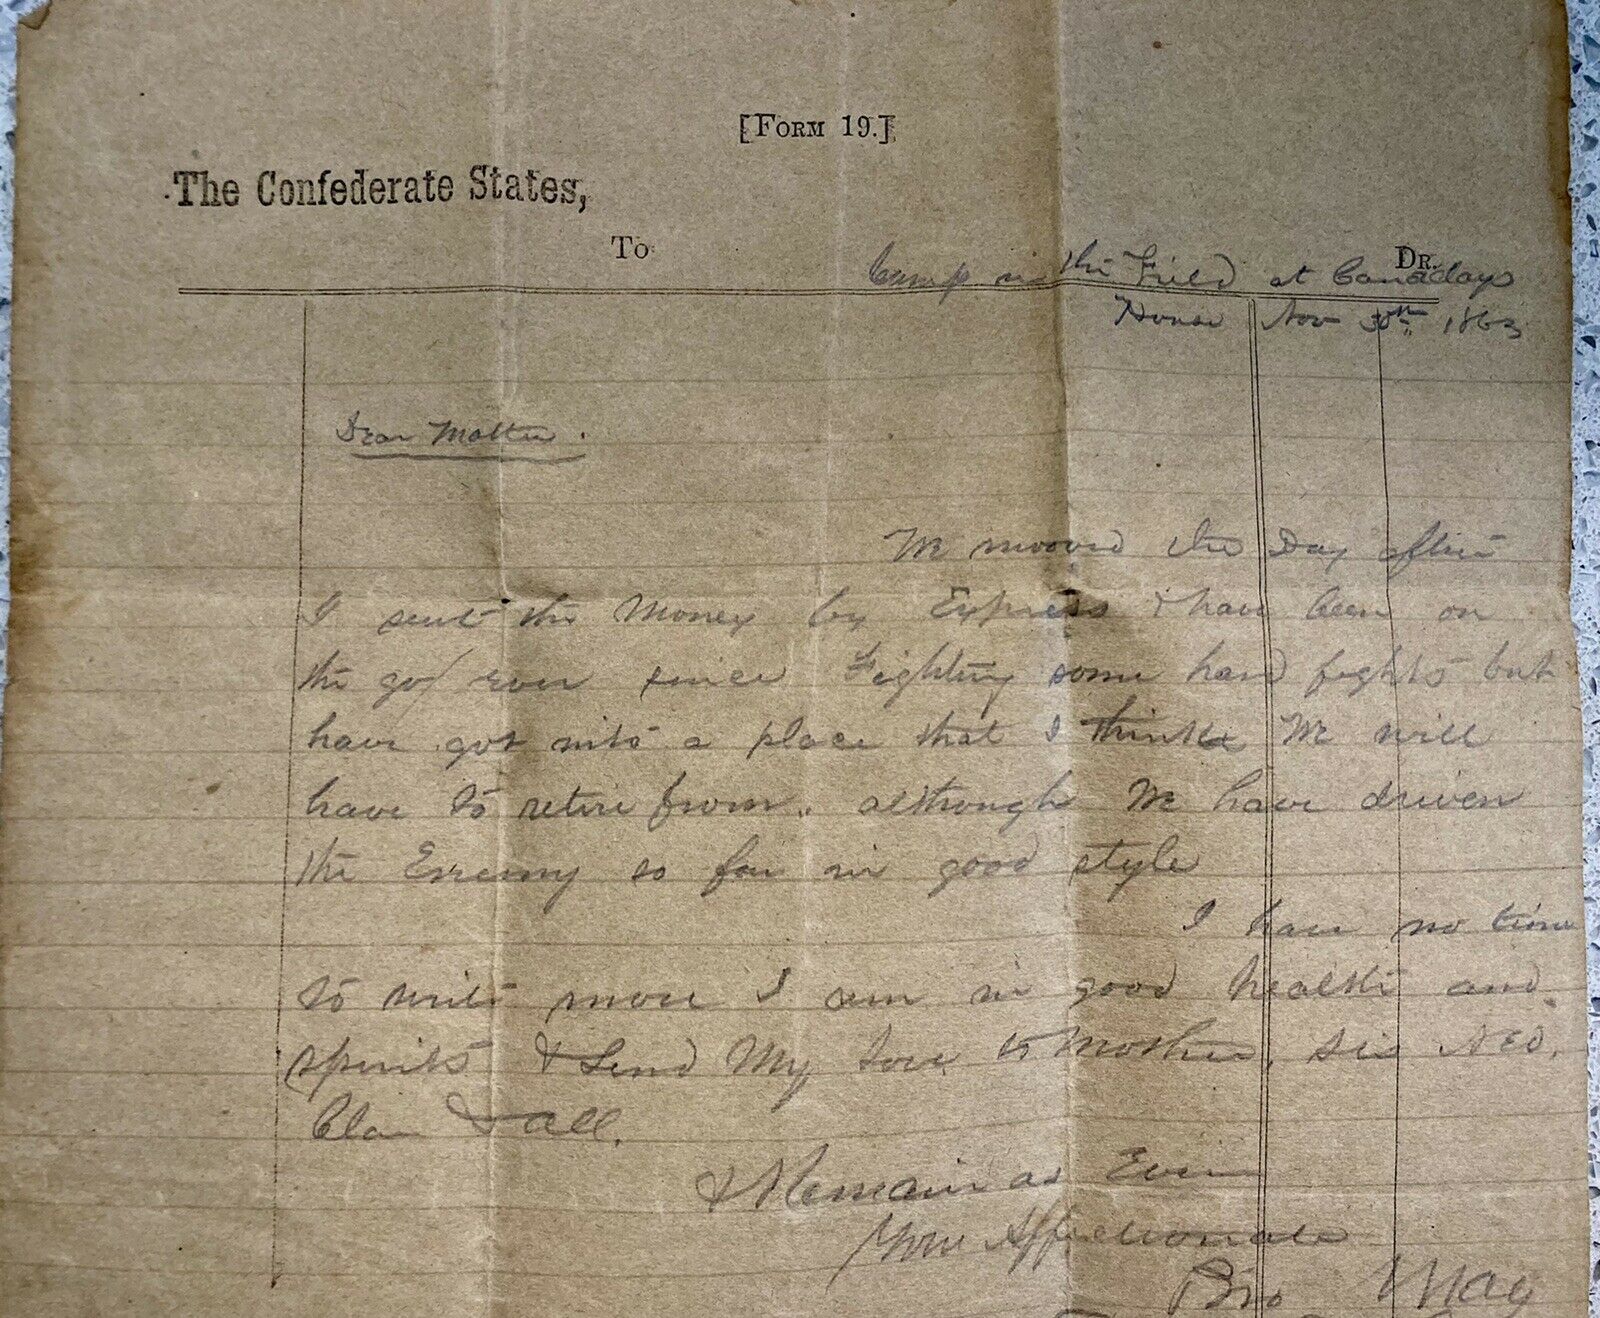 [FORM 19.]
The Confederate States,
To
DR.
Camp in the Field at Canadays
House Nov 30th 1863
Dear Mattie
We mooved the Day after
I sent the Money by Express & have been on
the go ever since Fighting some hard fights but
have got into a place that I think We will
have to retire from. although We have driven
the Enemy so far in good style
I have no time
to write more I am in good health and
spirits & Send My Love to Mother, Sis Ned,
Clar & all.
& Remain as Ever
Your Affectionate
Bro May